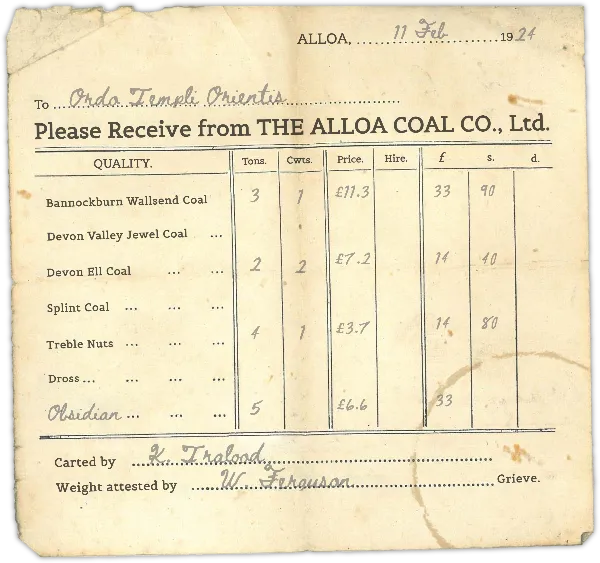 ALLOA, 11 Feb 1924
To Ordo Templi Orientis
Please Receive from THE ALLOA COAL CO., Ltd.
QUALITY. Tons. Cwts. Price. Hire. £ s. d.
Bannockburn Wallsend Coal 3 1 £11.3 33 90
Devon Valley Jewel Coal ...
Devon Ell Coal ... ... 2 2 £7.2 14 40
Splint Coal ... ... ...
Treble Nuts ... ... ... 4 1 £3.7 14 80
Dross... ... ... ...
Obsidian ... ... ... 5 £6.6 33
Carted by K. Traload
Weight attested by W. Ferguson Grieve.